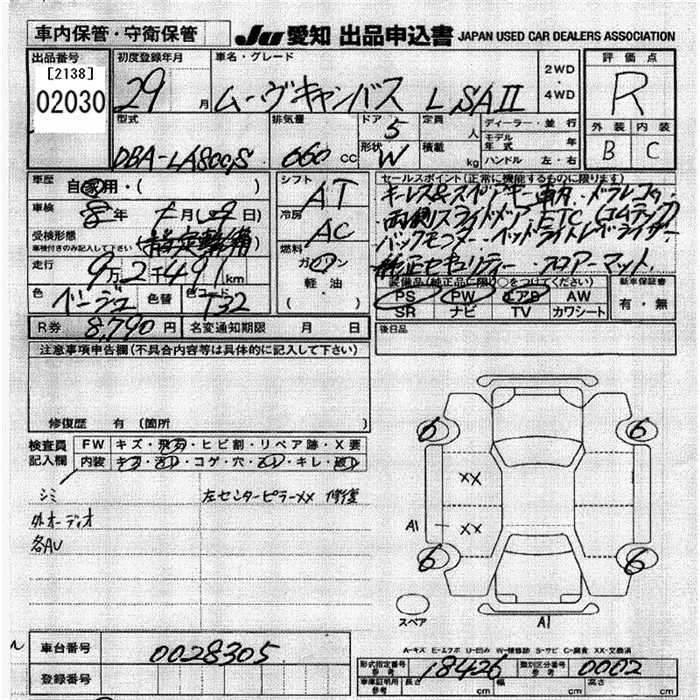 車内保管・守衛保管
JU 愛知 出品申込書 JAPAN USED CAR DEALERS ASSOCIATION
出品番号 初度登録年月 車名・グレード 評価点
[2138]
02030
29 月 ムーヴキャンバス L SAⅡ 2WD ・ 4WD R
型式 排気量 ドア 5 定員 人 ディーラー・並行 外装 内装
DBA-LA800S 660 cc 形状 W 積載 kg モデル年式 年 B C
ハンドル 左・右
車歴 自家用・( ) シフト AT セールスポイント(正常に機能するものに限ります)
キーレス&スペアキー車内 ・ドラレコ
車検 8年 7月(29日) 冷房 AC ・両側スライドドア ・ETC(コムテック)
受検形態 車検付きのみ記入して下さい (指定整備) 燃料 バックモニター ・ヘッドライトレベライザー
走行 9万2千491km ガソリン ・純正セキュリティー ・フロアーマット
軽油 装備品(純正品に限り○をつけてください) 新車保証書
色 ベージュ 色替 色コード T32 ・( ) PS PW エアB AW 有・無
SR ナビ TV カワシート
R券 8,790円 名変通知期限 月 日 後日品
注意事項申告欄(不具合内容等は具体的に記入して下さい)
修復歴 有(箇所 )
検査員記入欄 FW キズ・飛石・ヒビ割・リペア跡・X要
内装 キズ・汚れ・コゲ・穴・・キレ・
シミ 左センターピラーXX 修復
外オーディオ
各AV
6 6
XX
A1 XX
6 6
スペア A1
A=キズ E=エクボ U=凹み W=補修跡 S=サビ C=腐食 XX=交換済
車台番号 0028305
形式指定番号 参考 18426 類別区分番号 参考 0002
登録番号 車庫証明用 参考 長さ cm 幅 cm 高さ cm